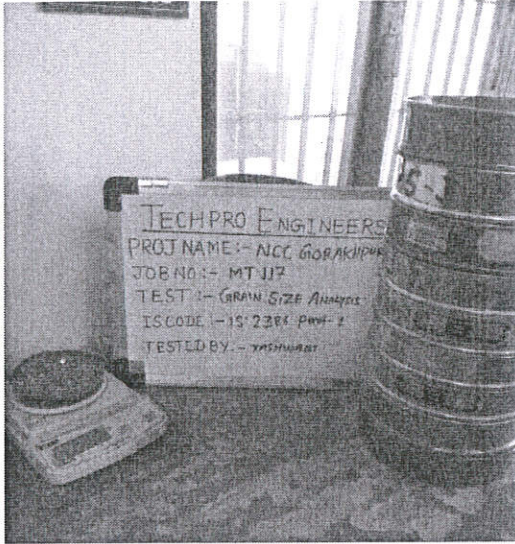 TECHPRO ENGINEERS
PROJ NAME:- NCC GORAKHPUR
JOB NO:- MT 117
TEST :- GRAIN SIZE ANALYSIS
IS CODE :- IS 2386 Part-1
TESTED BY:- YASHWANT